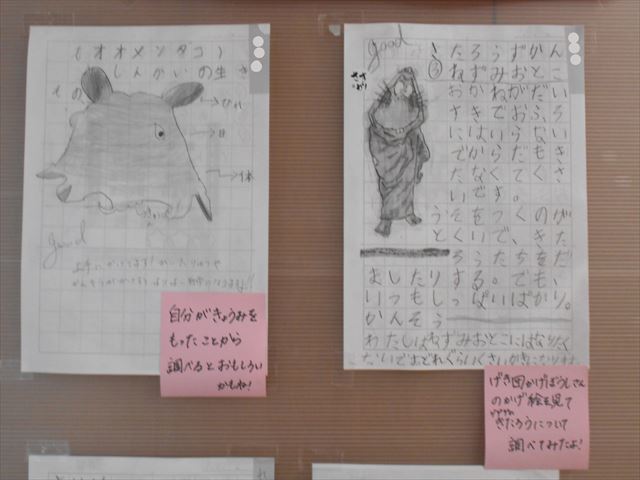 (オオメンダコ)
しんかいの生き
もの
ひれ
目
体
good
自分がきょうみを
もったことから
調べるとおもしろい
かもね!
good
きたろうずかん
②ねずみおとこ
おかねがだい
すきでおふろ
にはいらない
でからだもき
たなくてくさ
いです。
うそをつくのが
とくいで、きた
ろうたちをだ
ましたりする。でも、
いつもしっぱいばかり。
かんそう
わたしはねずみおとこにはなりたく
ないでもどれぐらいくさいかきになります
げき団かげぼうしさん
のかげ絵を見て
きたろうについて
調べてみたよ!